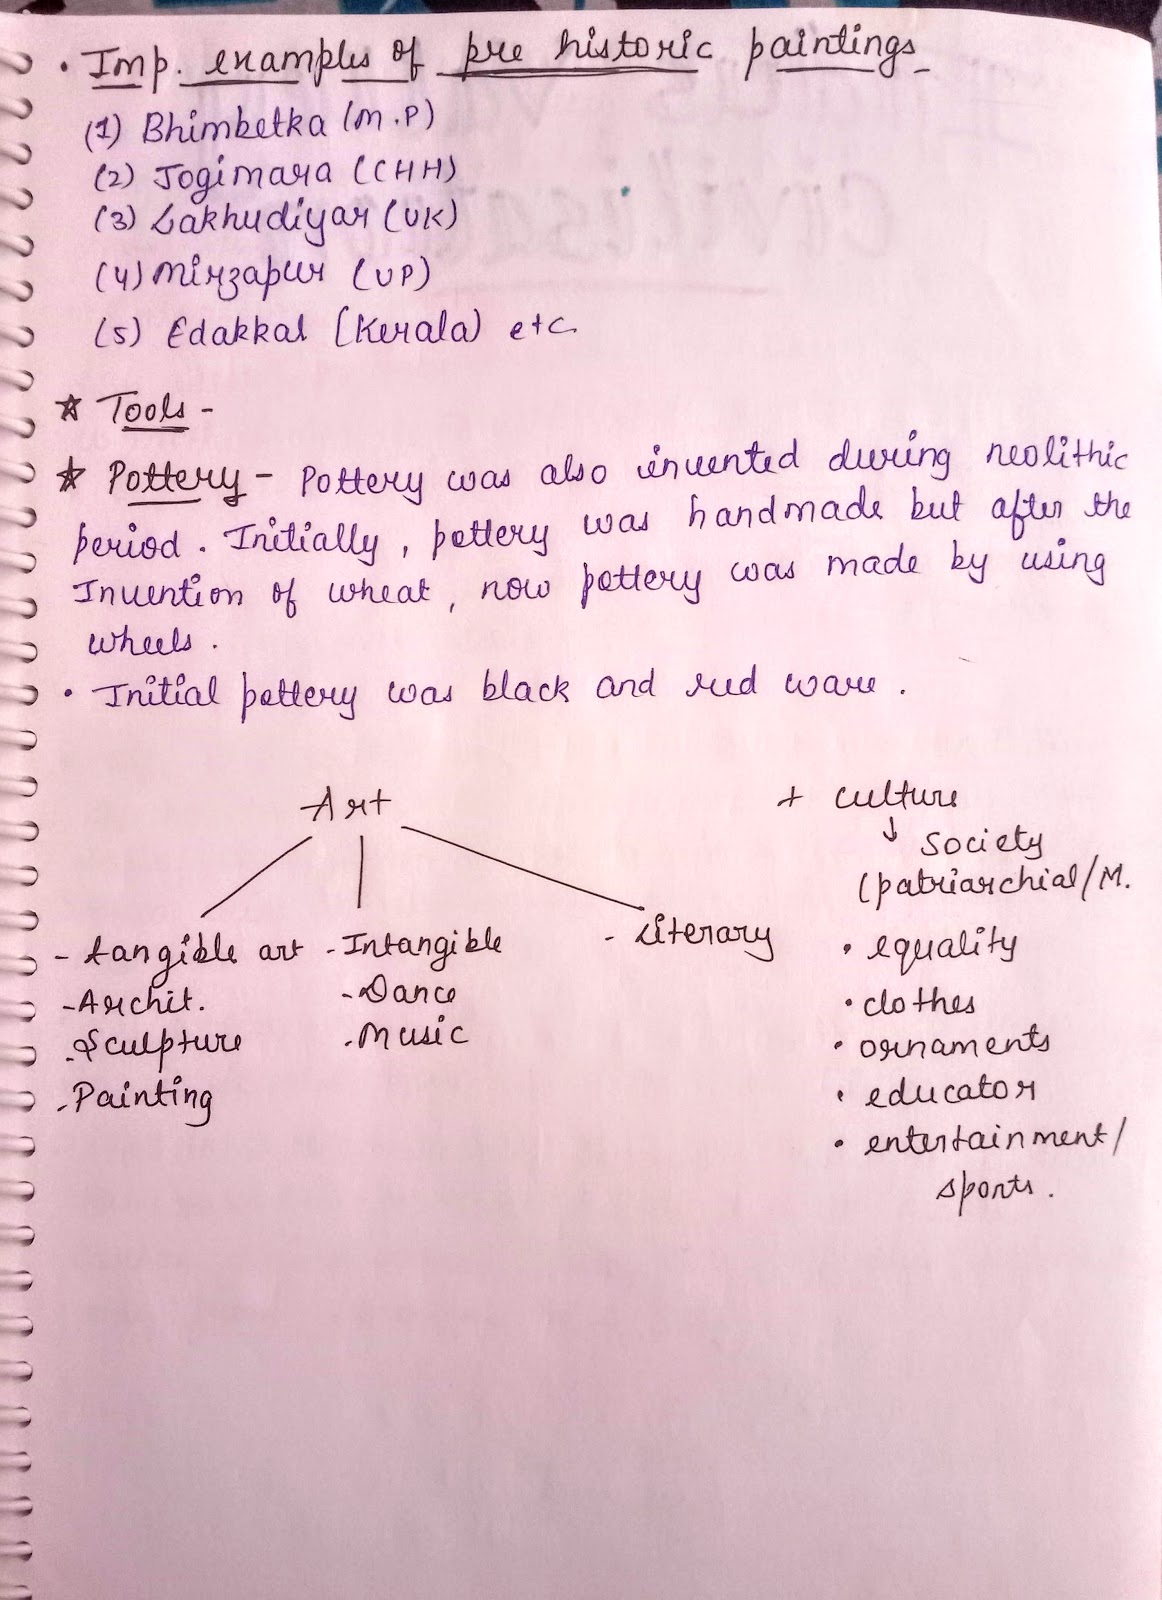 • Imp. examples of pre historic paintings -
(1) Bhimbetka (M.P)
(2) Jogimara (CHH)
(3) Lakhudiyar (UK)
(4) Mirzapur (UP)
(5) Edakkal (Kerala) etc.
☆ Tools -
☆ Pottery - Pottery was also invented during neolithic
period. Initially, pottery was handmade but after the
Invention of wheat, now pottery was made by using
wheels.
• Initial pottery was black and red ware.
Art + culture
↓ society
(patriarchial/M.
- tangible art - Intangible - Literary • equality
- Archit. - Dance • clothes
- Sculpture - Music • ornaments
- Painting • educator
• entertainment/
sports.